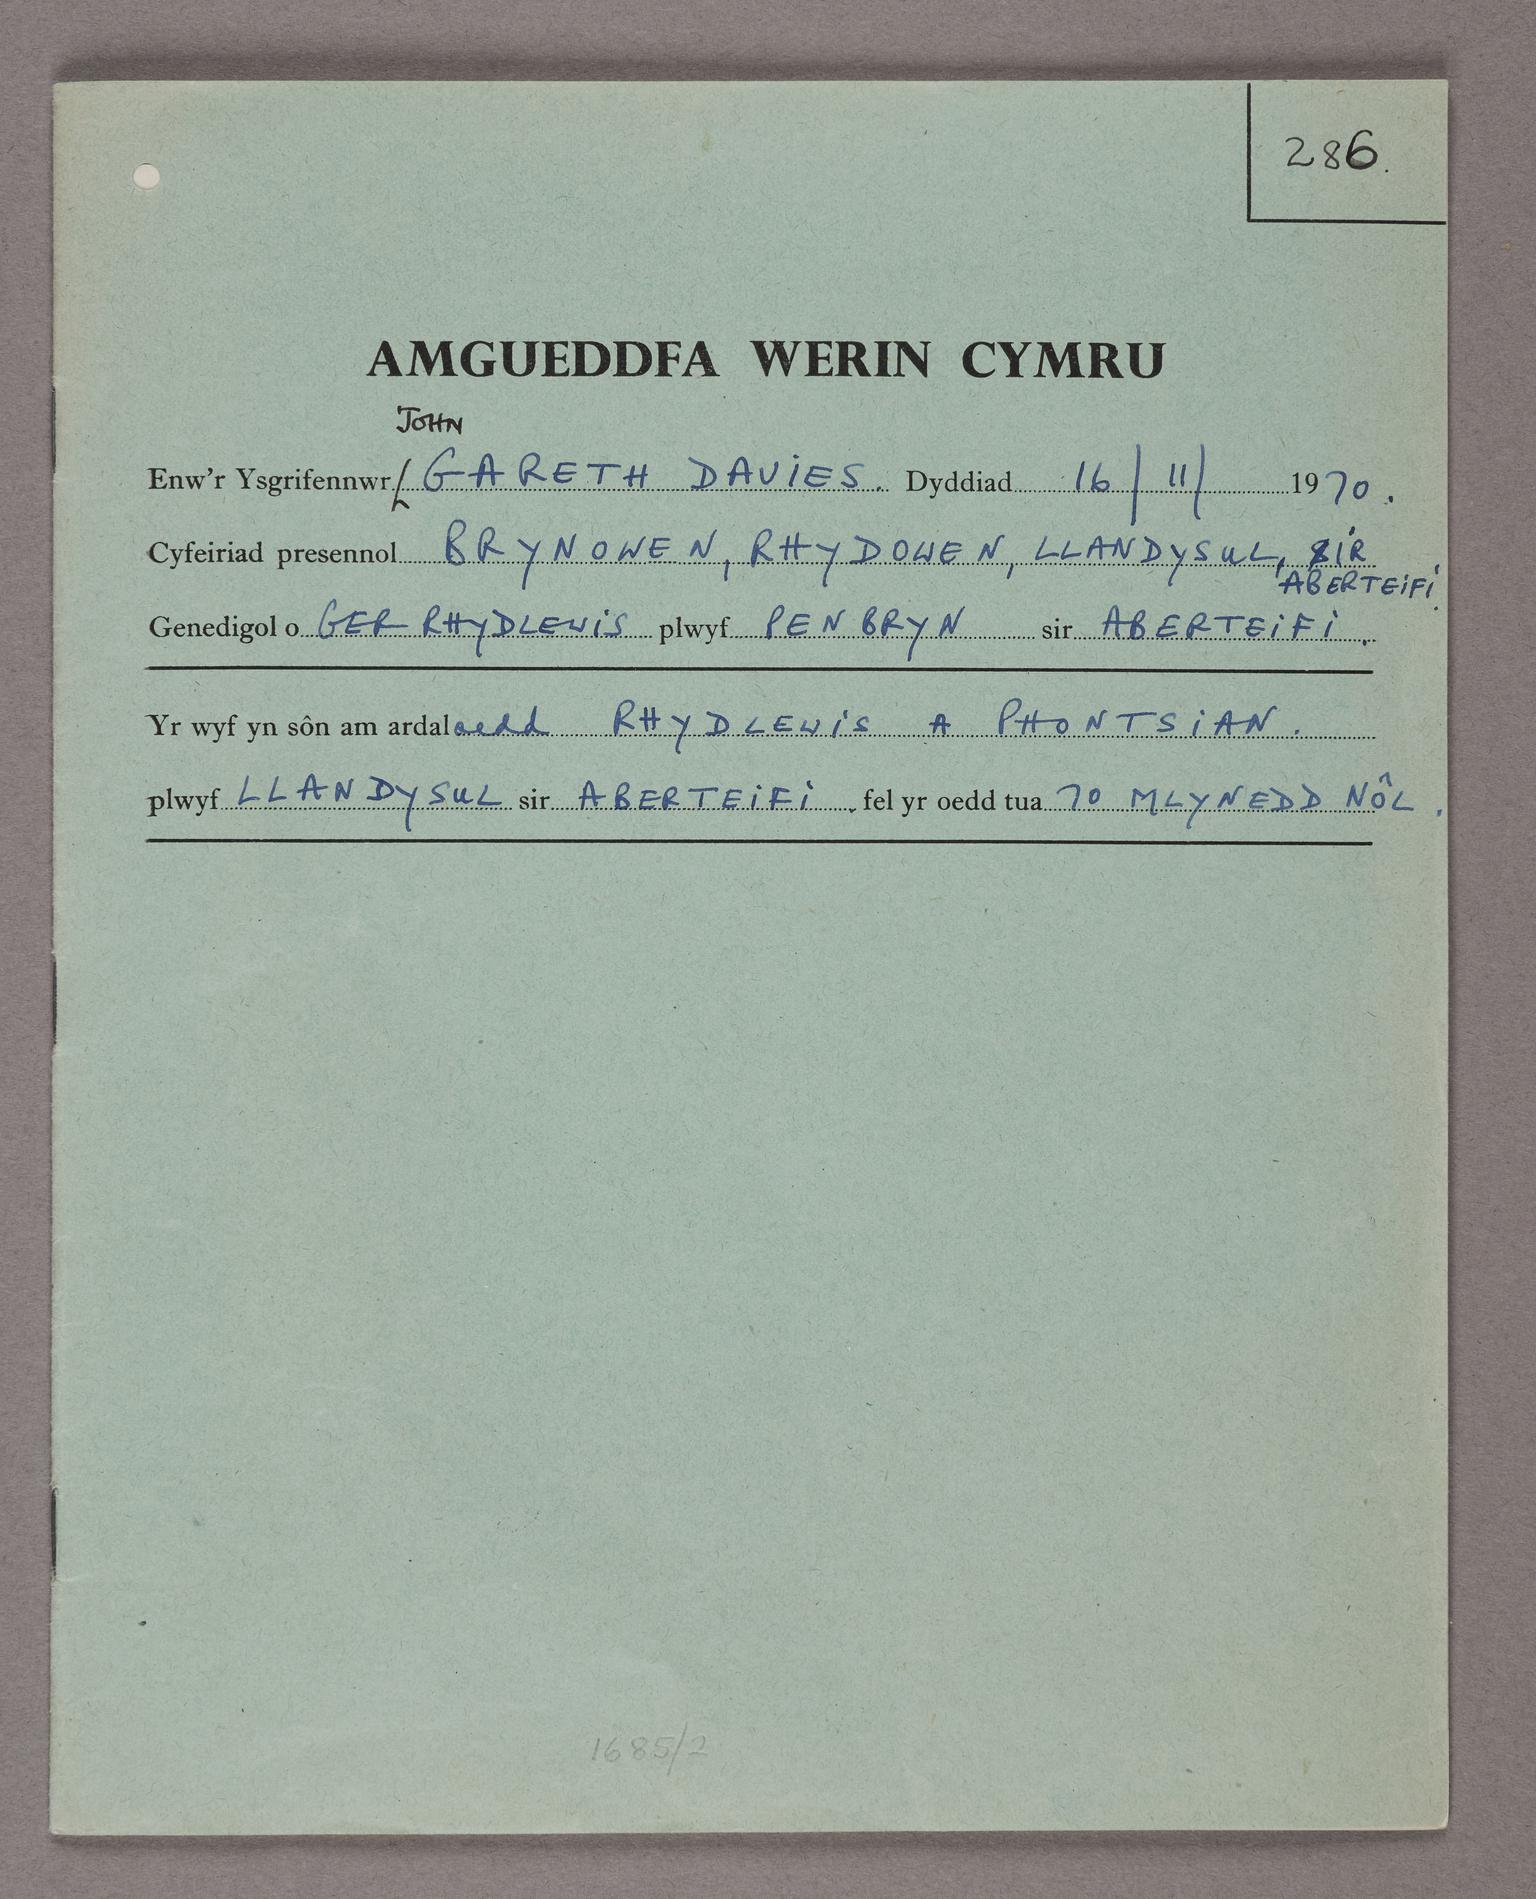 286.
AMGUEDDFA WERIN CYMRU
JOHN
Enw'r Ysgrifennwr GARETH DAVIES. Dyddiad 16/11/ 1970.
Cyfeiriad presennol BRYNOWEN, RHYDOWEN, LLANDYSUL, SIR
ABERTEIFI.
Genedigol o GER RHYDLEWIS plwyf PENBRYN sir ABERTEIFI.
Yr wyf yn sôn am ardaloedd RHYDLEWIS A PHONTSIAN.
plwyf LLANDYSUL sir ABERTEIFI. fel yr oedd tua 70 MLYNEDD NÔL.
1685/2